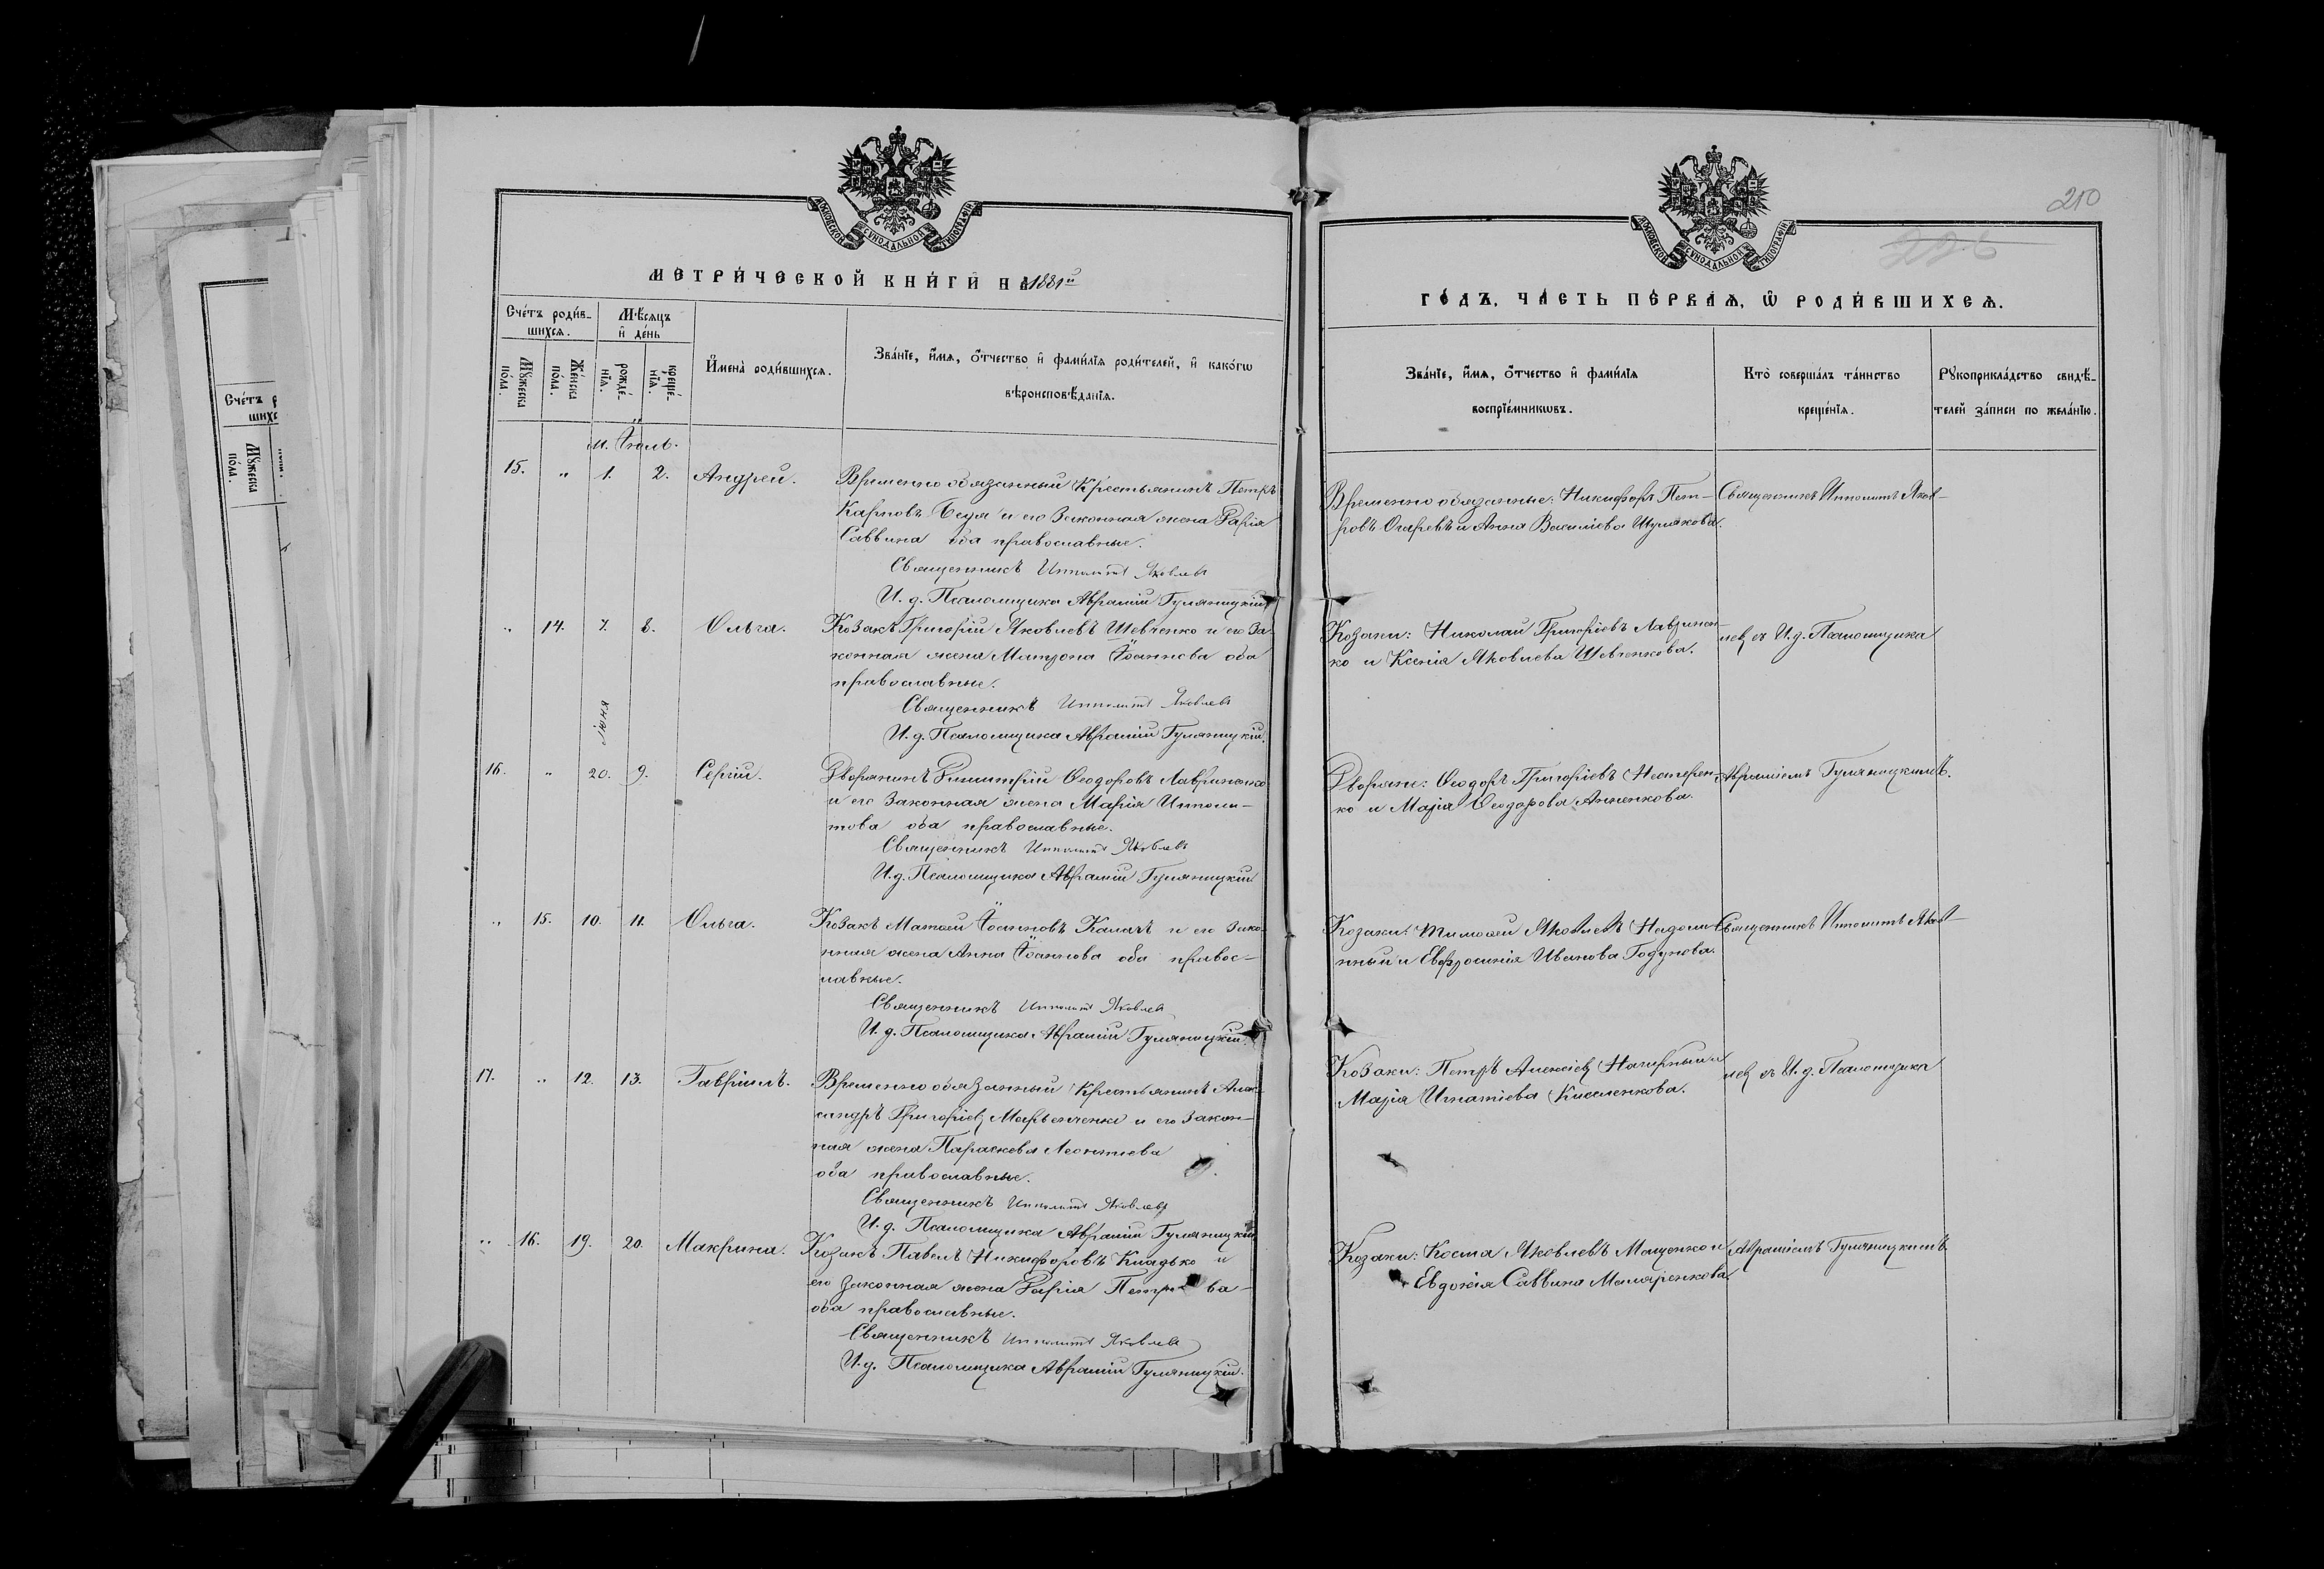 МОСКОВСКОЙ СѴНОДАЛЬНОЙ ТИПОГРАФІИ
МЕТРИ́ЧЕСКОЙ КНИ́ГИ НА 1881й
Сче́тъ роди́в-
шихсѧ.
Мѣ́сѧцъ
и҆ де́нь
Мꙋ́жеска
по́ла.
Же́нска
по́ла.
рожде́-
нїѧ.
креще́-
нїѧ.
И҆мена̀ роди́вшихсѧ.
Зва́нїе, и҆́мѧ, ѻ҆́тчество и҆ фами́лїѧ роди́телей, и҆ како́гѡ
вѣроисповѣ́данїѧ.
м. Іюль.
15. " 1. 2. Андрей. Временно обязанный Крестьянинъ Петръ
Карповъ и его Законная жена Дарія
Саввина оба православные.
Священникъ Ипполитъ Яковлевъ
И. д. Псаломщика Аврамій Гуляницкій
" 14. 7. 8. Ольга. Козакъ Григорій Яковлевъ Шевченко и его За-
конная жена Матрона Іоаннова оба
православные.
Священникъ Ипполитъ Яковлевъ
И. д. Псаломщика Аврамій Гуляницкій.
Іюня
16. " 20. 9. Сергій. Дворянинъ Димитрій Ѳеодоровъ Лавриненко
и его Законная жена Марія Ипполи-
това оба православные.
Священникъ Ипполитъ Яковлевъ
И. д. Псаломщика Аврамій Гуляницкій
" 15. 10. 11. Ольга. Козакъ Матѳей Іоанновъ Калачъ и его Зако-
нная жена Анна Іоаннова оба правос-
лавные.
Священникъ Ипполитъ Яковлевъ
И. д. Псаломщика Аврамій Гуляницкій.
17. " 12. 13. Гавріилъ. Временно обязанный Крестьянинъ Алек-
сандръ Григоріевъ и его Закон-
ная жена Параскева Леонтіева
оба православные.
Священникъ Ипполитъ Яковлевъ
И. д. Псаломщика Аврамій Гуляницкій
" 16. 19. 20. Макрина. Козакъ Павелъ Никифоровъ Кладько и
его Законная жена Дарія Петрова
оба православные.
Священникъ Ипполитъ Яковлевъ
И. д. Псаломщика Аврамій Гуляницкій.
210
226
МОСКОВСКОЙ СѴНОДАЛЬНОЙ ТИПОГРАФІИ
ГО́ДЪ, ЧА́СТЬ ПЕ́РВАѦ, Ѽ РОДИ́ВШИХСѦ.
Зва́нїе, и҆́мѧ, ѻ҆́тчество и҆ фами́лїѧ
воспрїе́мникѡвъ.
Кто̀ соверша́лъ та́инство
креще́нїѧ.
Рꙋкоприкла́дство свидѣ́-
телей за́писи по жела́нїю.
Временно обязанные: Никифоръ Пет-
ровъ и Анна Василіева Шулякова.
Священникъ Ипполитъ Яков-
Козаки: Николай Григоріевъ Лавринен-
ко и Ксенія Яковлева Шевченкова.
левъ съ И. д. Псаломщика
Дворяне: Ѳеодоръ Григоріевъ Нестерен-
ко и Марія Ѳеодорова Анненкова.
Авраміемъ Гуляницкимъ.
Козаки: Тимоѳей Яковлевъ
и Евфросинія Иванова Годунова.
Священникъ Ипполитъ Яков-
Козаки: Петръ Алексіевъ Нагирный и
Марія Игнатіева Киселенкова.
левъ съ И. д. Псаломщика
Козаки: Косма Яковлевъ Мащенко и
Евдокія Саввина Маляренкова.
Авраміемъ Гуляницкимъ